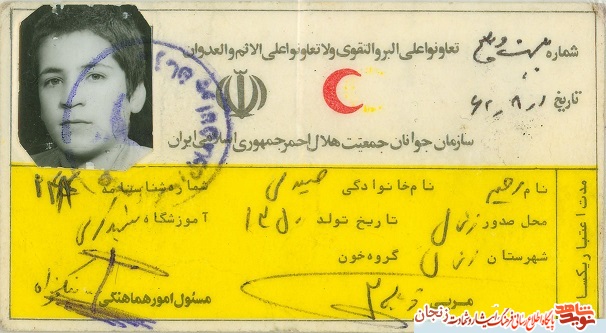 تعاونوا علی البر والتقوی ولا تعاونوا علی الاثم والعدوان
شماره
تاریخ ۶۲٫۸٫۱
سازمان جوانان جمعیت هلال احمر جمهوری اسلامی ایران
نام رحیم نام خانوادگی صیدی شماره شناسنامه
محل صدور زنجان تاریخ تولد ۱۳۵۰ آموزشگاه
شهرستان زنجان گروه خون
مربی مسئول امور هماهنگی
مدت اعتبار یکسال
نوید شاهد
پایگاه اطلاع رسانی فرهنگ ایثار و شهادت زنجان